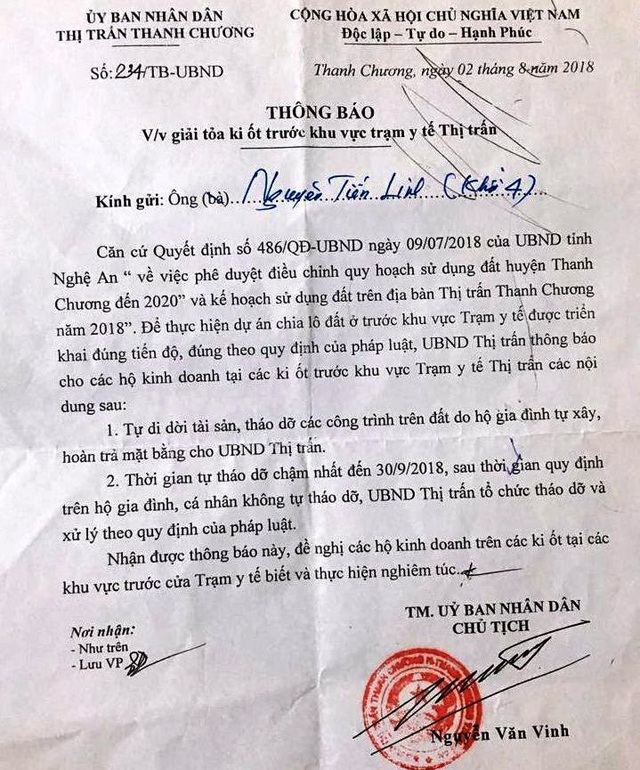 ỦY BAN NHÂN DÂN
THỊ TRẤN THANH CHƯƠNG
Số: 234/TB-UBND
CỘNG HÒA XÃ HỘI CHỦ NGHĨA VIỆT NAM
Độc lập – Tự do – Hạnh Phúc
Thanh Chương, ngày 02 tháng 8 năm 2018
THÔNG BÁO
V/v giải tỏa ki ốt trước khu vực trạm y tế Thị trấn
Kính gửi: Ông (bà)...Nguyễn Tiến Linh (Khối 4)...
Căn cứ Quyết định số 486/QĐ-UBND ngày 09/07/2018 của UBND tỉnh
Nghệ An “ về việc phê duyệt điều chỉnh quy hoạch sử dụng đất huyện Thanh
Chương đến 2020” và kế hoạch sử dụng đất trên địa bàn Thị trấn Thanh Chương
năm 2018”. Để thực hiện dự án chia lô đất ở trước khu vực Trạm y tế được triển
khai đúng tiến độ, đúng theo quy định của pháp luật, UBND Thị trấn thông báo
cho các hộ kinh doanh tại các ki ốt trước khu vực Trạm y tế Thị trấn các nội
dung sau:
1. Tự di dời tài sản, tháo dỡ các công trình trên đất do hộ gia đình tự xây,
hoàn trả mặt bằng cho UBND Thị trấn.
2. Thời gian tự tháo dỡ chậm nhất đến 30/9/2018, sau thời gian quy định
trên hộ gia đình, cá nhân không tự tháo dỡ, UBND Thị trấn tổ chức tháo dỡ và
xử lý theo quy định của pháp luật.
Nhận được thông báo này, đề nghị các hộ kinh doanh trên các ki ốt tại các
khu vực trước cửa Trạm y tế biết và thực hiện nghiêm túc.
Nơi nhận:
- Như trên
- Lưu VP
TM. UỶ BAN NHÂN DÂN
CHỦ TỊCH
Nguyễn Văn Vinh